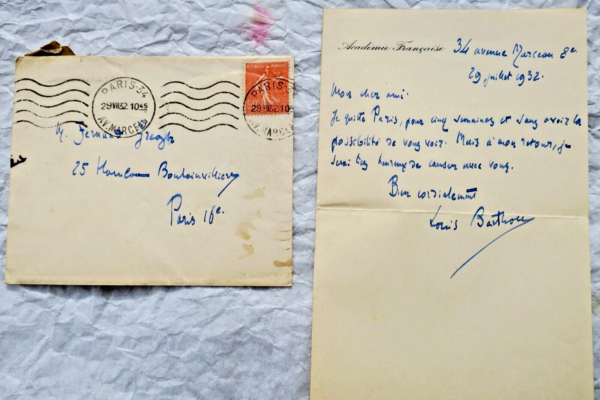 PARIS-34
29 VII 32. 10 45
AV. MARCEAU
PARIS-34
29 VII 32. 10
AV. MARCEAU
M. Fernand Gregh
25 Hameau Boulainvilliers
Paris 16e.
Académie Française
34 avenue Marceau 8e
29 juillet 1932.
Mon cher ami.
Je quitte Paris, pour cinq semaines et sans avoir la
possibilité de vous voir. Mais à mon retour, je
serai très heureux de causer avec vous.
Bien cordialement
Louis Barthou